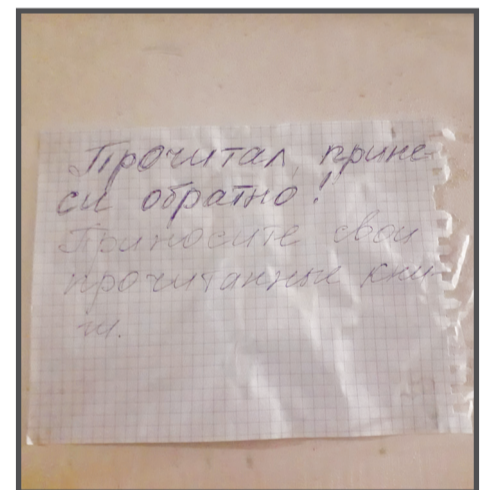 Прочитал, прине-
си обратно!
Приносите свои
прочитанные кни-
ги.